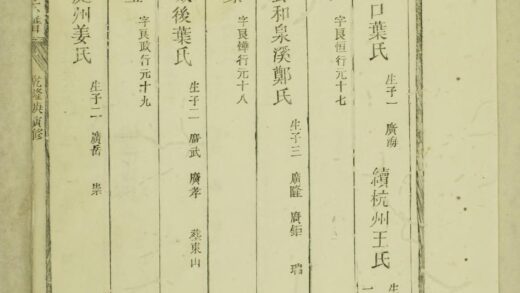 口葉氏 生子一 廣海 續杭州王氏 生
字良恒行元十七
和泉溪鄭氏 生子三 廣隆 廣鉅 瑞
行元十八
後葉氏 生子二 廣武 廣孝 葬東山
字良政行元十九
州姜氏 生子二 廣岳 崇
乾隆庚寅修